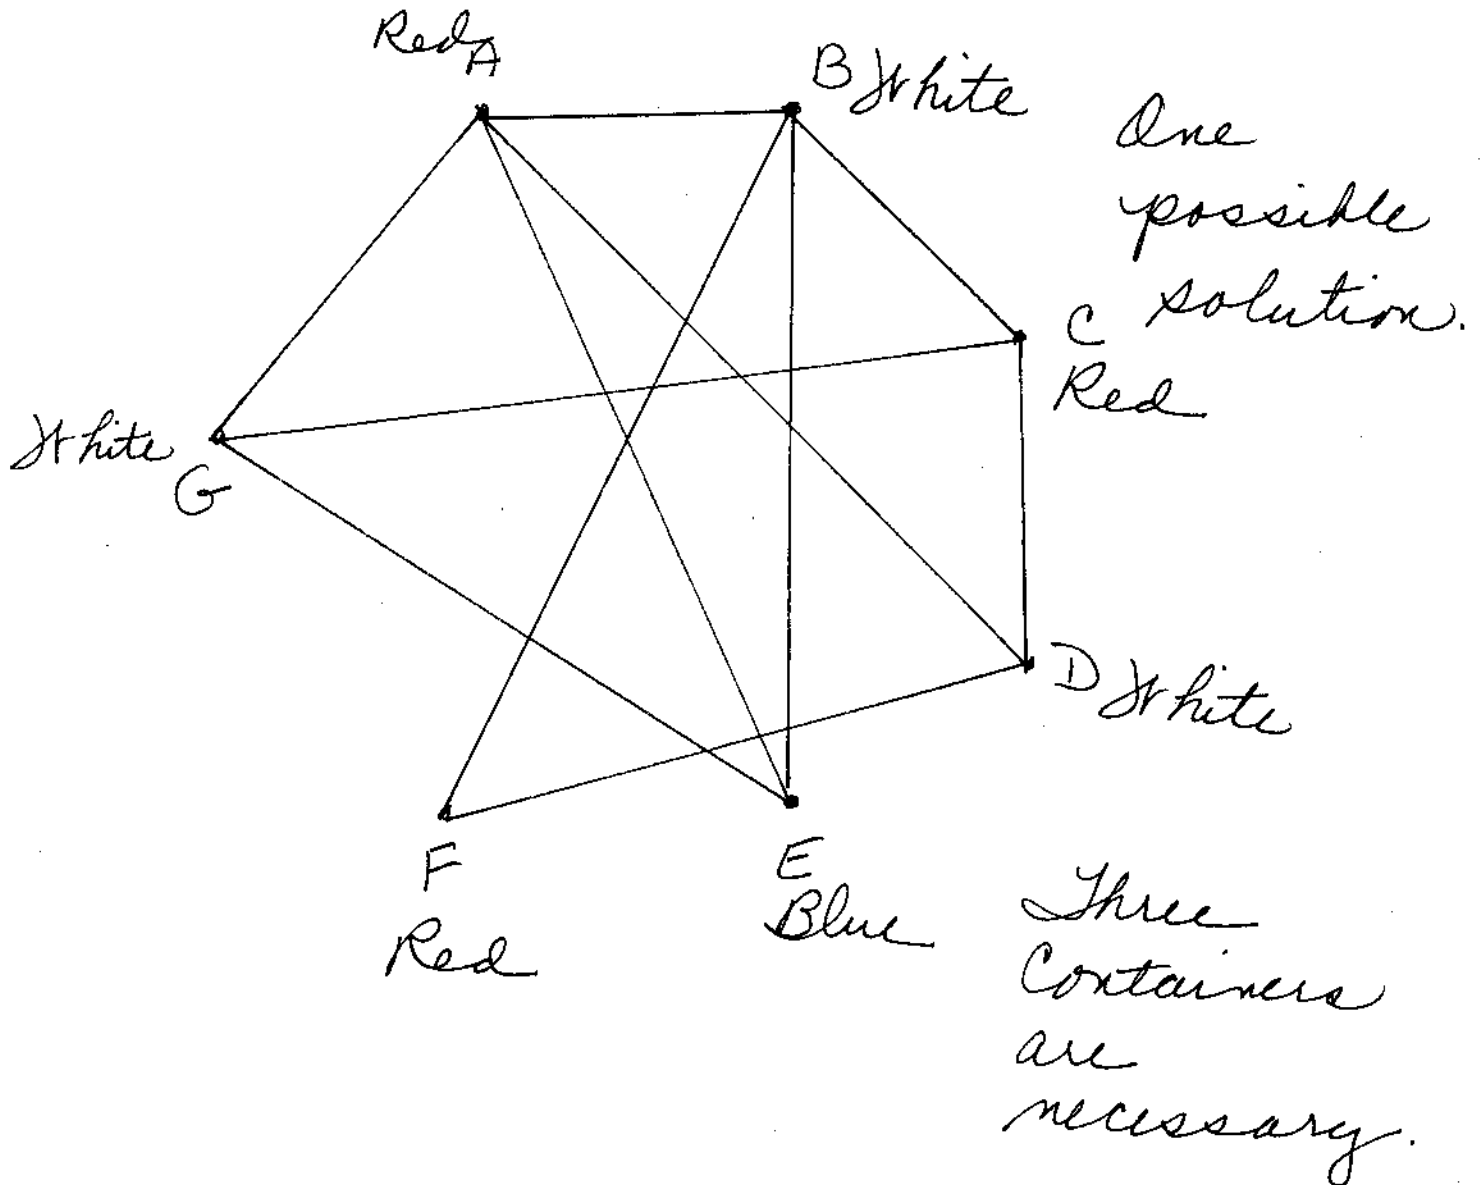 Red A
B White
One
possible
solution.
C
Red
White
G
D White
F
Red
E
Blue
Three
Containers
are
necessary.